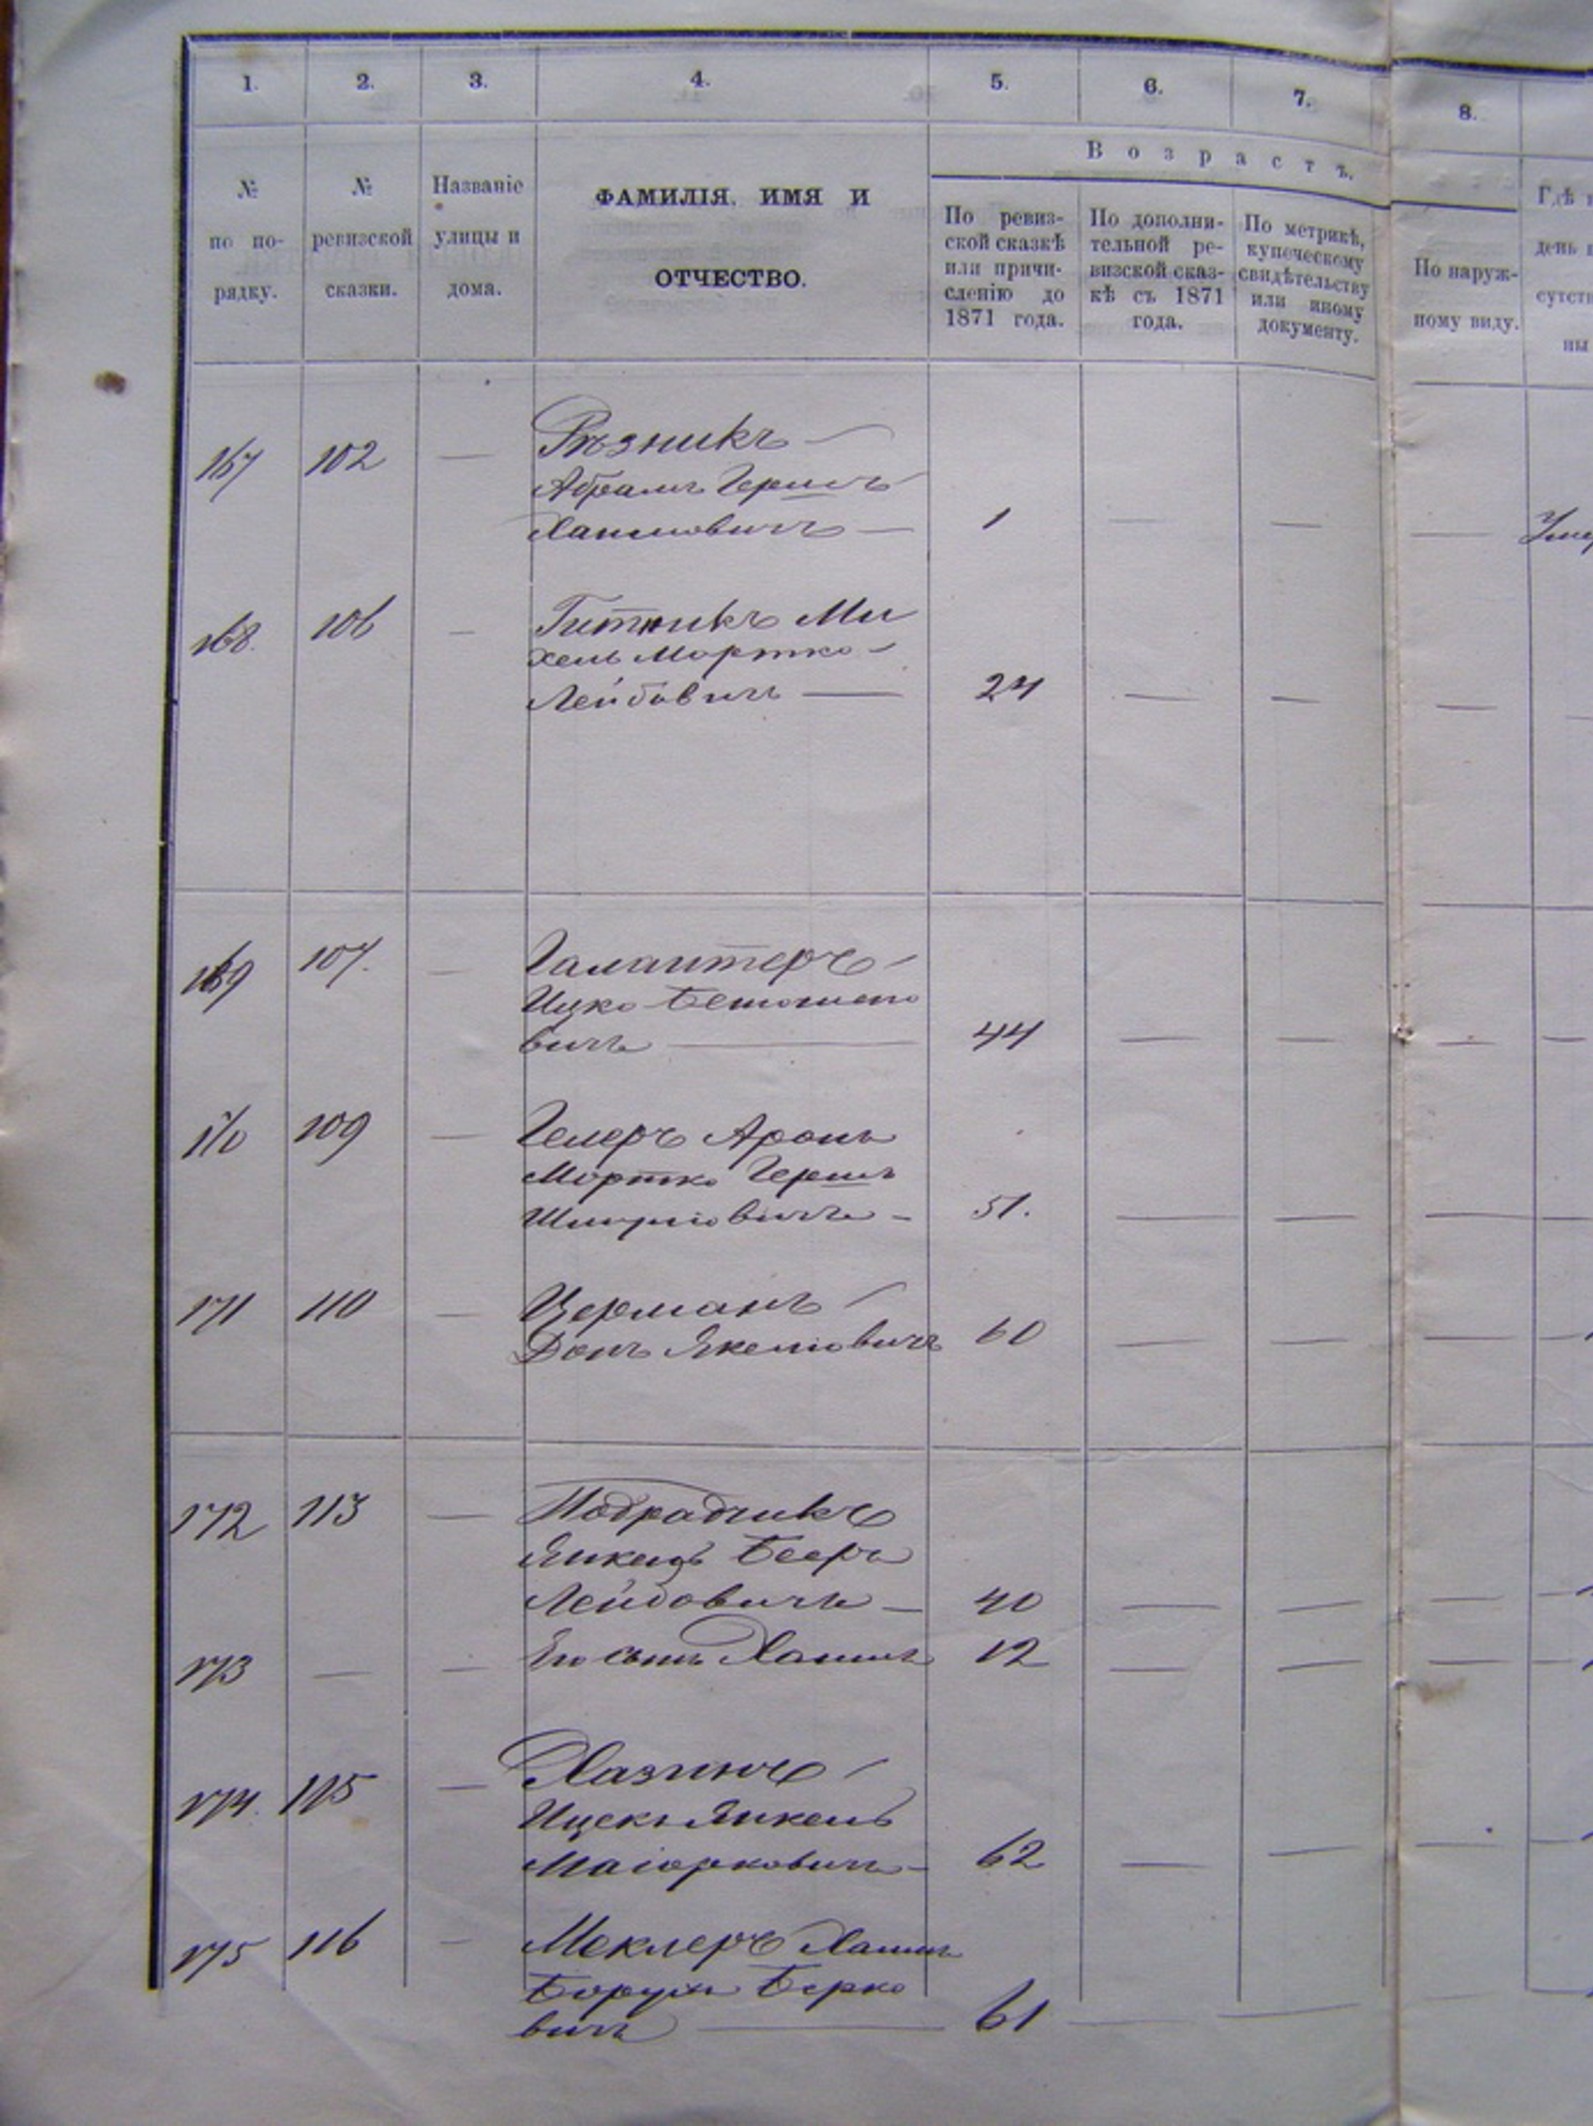 1. 2. 3. 4. 5. 6. 7. 8.
Возрастъ.
№ по по-рядку.
№ ревизской сказки.
Названіе улицы и дома.
ФАМИЛІЯ, ИМЯ И
ОТЧЕСТВО.
По ревиз-
ской сказкѣ
или причи-
сленію до
1871 года.
По дополни-
тельной ре-
визской сказ-
кѣ съ 1871
года.
По метрикѣ,
купеческому
свидѣтельству
или иному
документу.
По наруж-
ному виду.
Гдѣ
день
сутст
ны
167 102 — Рѣзникъ —
Абрамъ Гершъ
Хаимовичъ — 1 — — — Умер
168. 106 — Гитникъ Ми
хель Мортко —
Лейбовичъ — 24 — — —
169 107. — Галантеръ —
Ицко
вичъ — 44 — — — —
170 109 — Гелеръ Аронъ
Мортко Гершъ
Шмулiовичъ — 51. — — —
171 110 — Церманъ —
Донъ Якелiовичъ 60 — — —
172 113 — Подрадчикъ
Янкель Бееръ
Лейбовичъ — 40 — — —
173 — — Его сынъ Хаимъ 12 — — —
174. 115 — Хазинъ —
Ицекъ Янкель
Маіорковичъ — 62 — — —
175 116 — Меклеръ Хаимъ
Борухъ Берко
вичъ — 61 — —